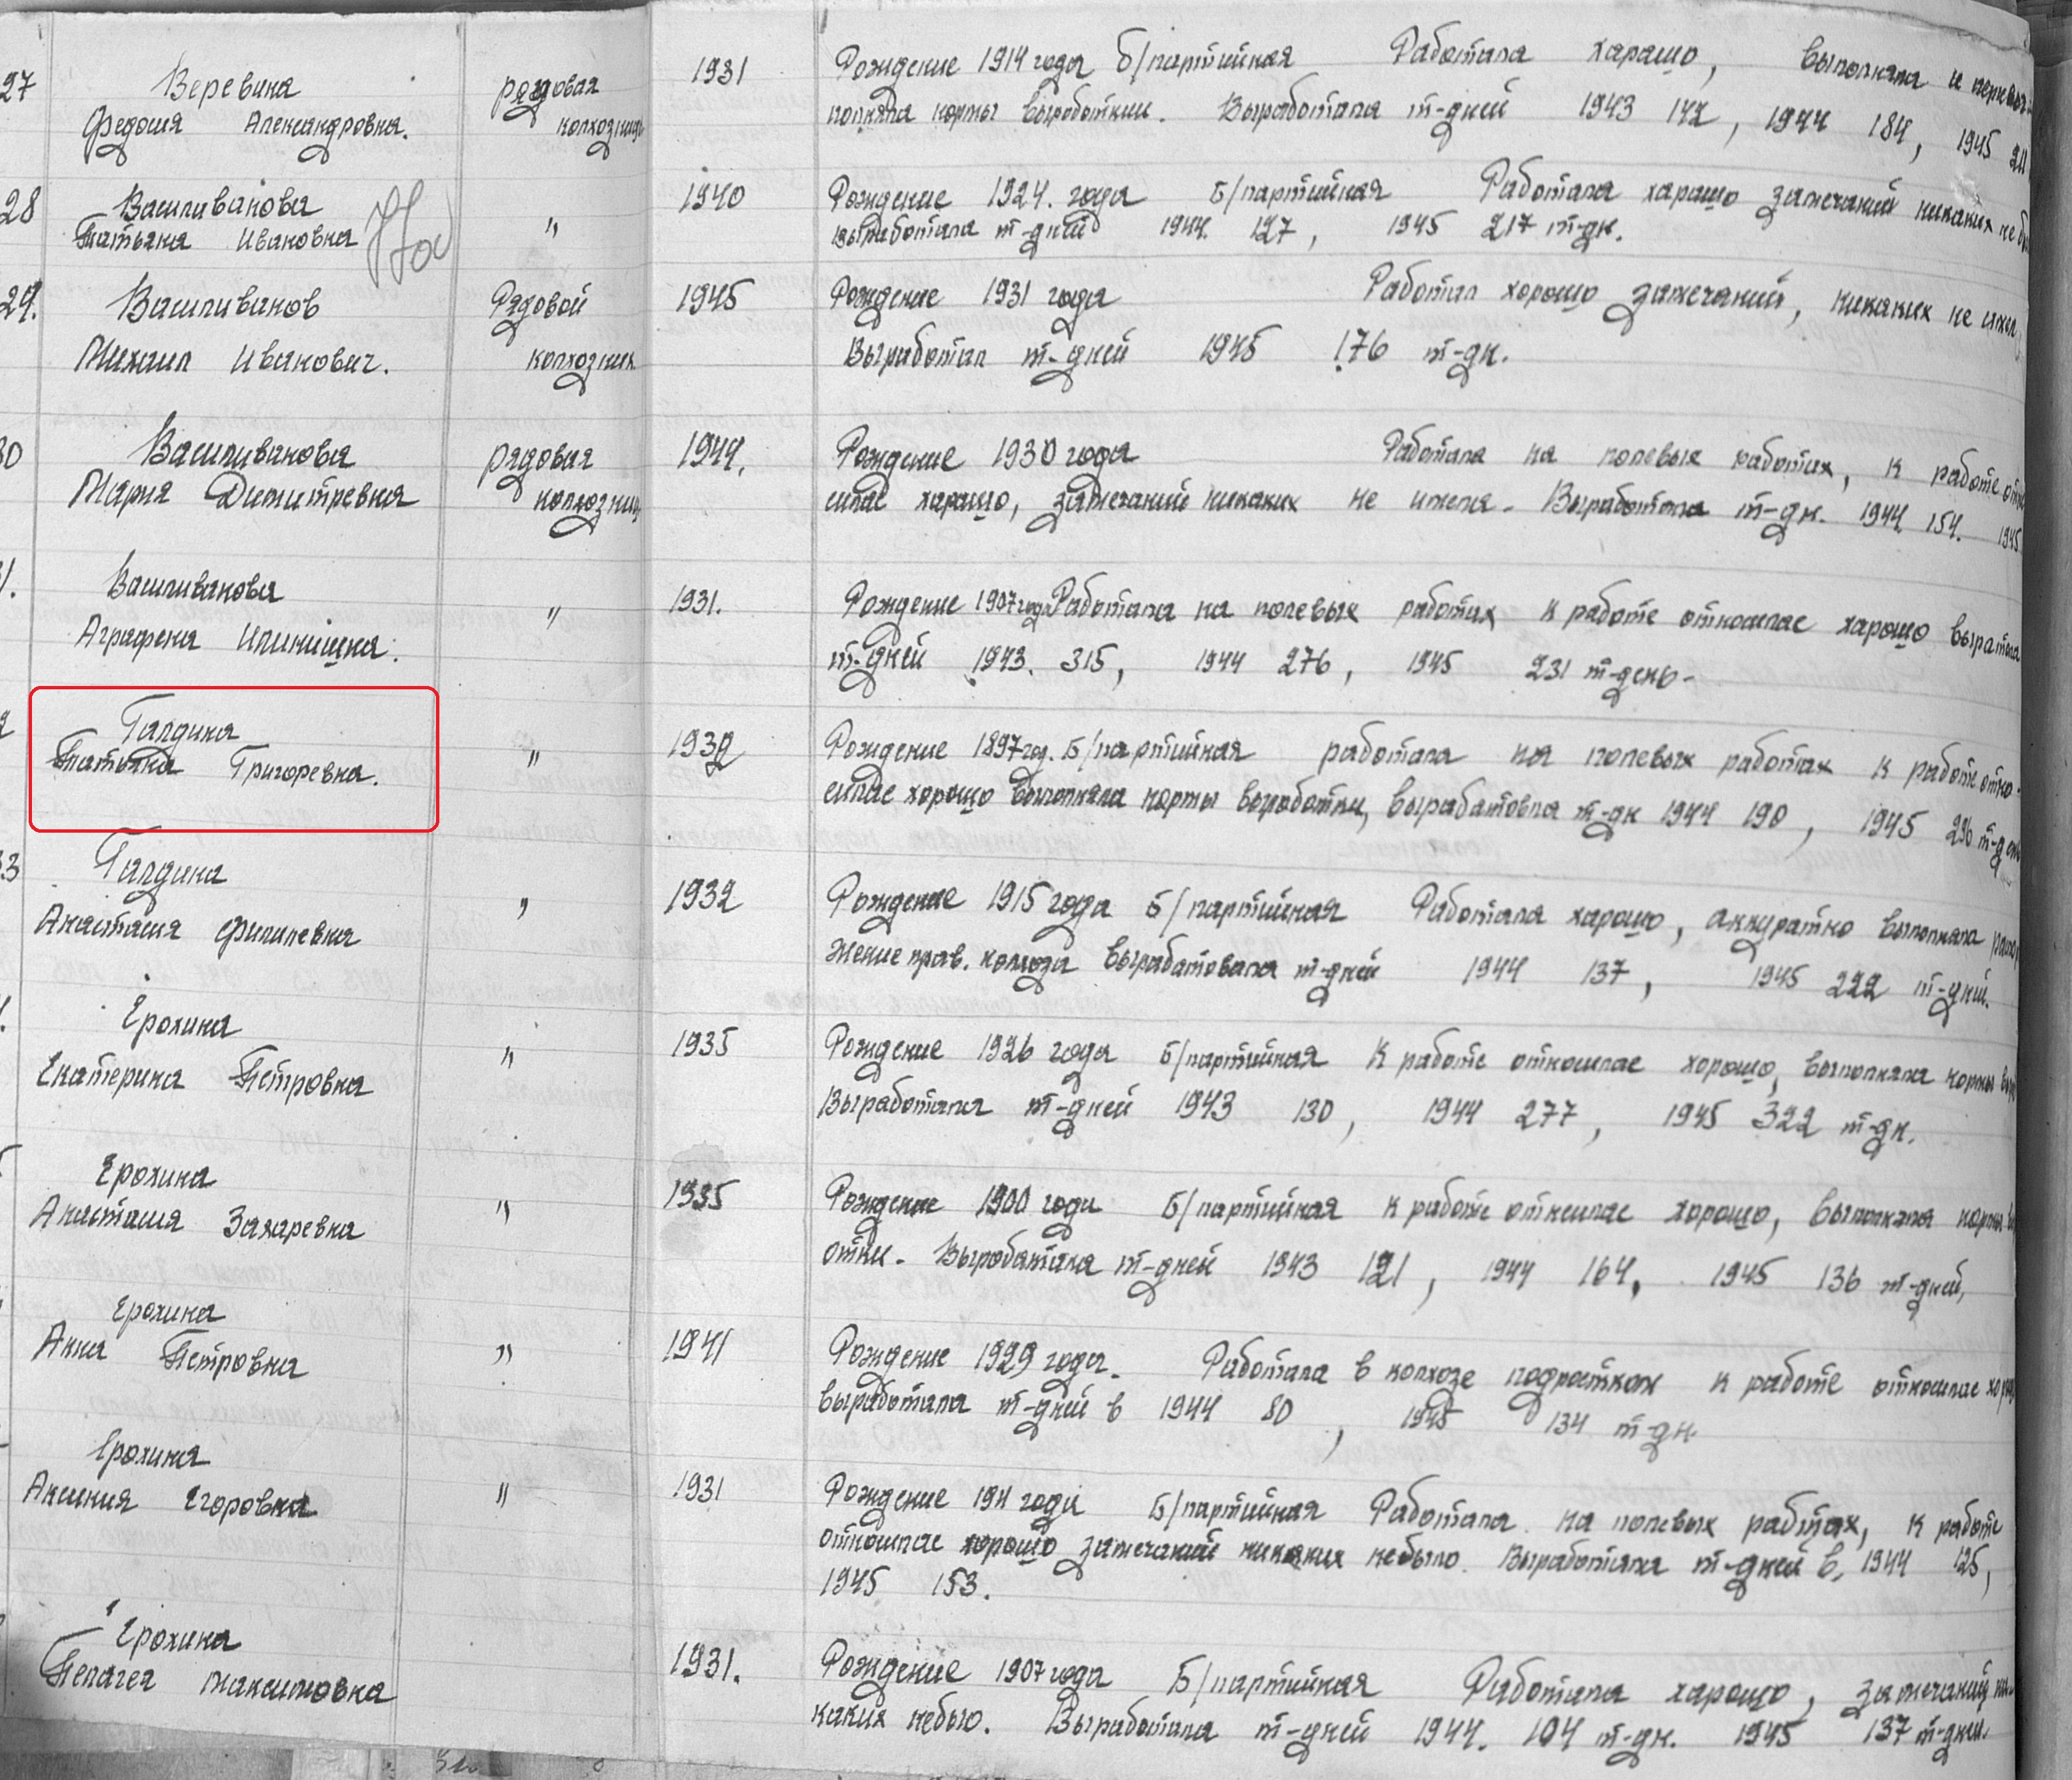 27 Веревина рядовая 1931 Рождение 1914 года Б/партийная Работала харашо, выполняла и перевы
Федосия Александровна. колхозниц полняла нормы выработкии. Выработала т-дней 1943 142, 1944 184, 1945 211
28 Васильиванова " 1940 Рождение 1924. года Б/партийная Работала харашо замечаний никаких не бы
Татьяна Ивановна выработала т-дней 1944. 127, 1945 217 т-дн.
29. Васильиванов Рядовой 1945 Рождение 1931 года Работал хорошо замечаний, никаких не имел
Михаил Иванович. колхозник Выработал т-дней 1945 176 т-дн.
30 Васильиванова рядовая 1944. Рождение 1930 года Работала на полевых работах, к работе отно
Мария Димитревна колхозниц силас харашо, замечаний никаких не имела. Выработала т-дн. 1944 154. 1945
1. Васильиванова " 1931. Рождение 1907 года Работала на полевых работах к работе относилас харашо выратала
Аграфена Илинишна. т-дней 1943. 315, 1944 276, 1945 231 т-день-
2 Галдина " 1932 Рождение 1897 год. Б/партийная работала на полевых работах к работе отно-
Татьяна Григоревна. силас хорошо выполняла нормы выработки, вырабатовла т-дн 1944 190, 1945 236 т-ден
33 Галдина " 1932 Рождение 1915 года Б/партийная Работала харашо, аккуратно выполняла
Анастасия Филипевна жение прав. колхоза вырабатовала т-дней 1944 137, 1945 222 т-дней.
Ерохина " 1935 Рождение 1926 года Б/партийная К работе относилас хорошо, выполняла нормы выр
Екатерина Петровна Выработала т-дней 1943 130, 1944 277, 1945 322 т-дн.
Ерохина " 1935 Рождение 1900 года Б/партийная К работе относилас хорошо, выполняла нормы
Анастасия Захаревна отки. Выробатала т-дней 1943 121, 1944 164, 1945 136 т-дней,
Ерохина " 1941 Рождение 1929 года. Работала в колхозе подростком к работе относилас хорош
Анна Петровна выработала т-дней в 1944 80, 1945 134 т-дн.
Ерохина " 1931 Рождение 1911 года Б/партийная Работала на полевых работах, к работе
Аксиния Егоровна относилас хорошо замечаний никаких небыло. Выработала т-дней в, 1944 125,
1945 153.
Ерохина 1931. Рождение 1907 года Б/партийная Работала харашо, замечаний ни-
Пелагея Максимовна каких небыло. Выработала т-дней 1944. 104 т-дн. 1945 137 т-дней.